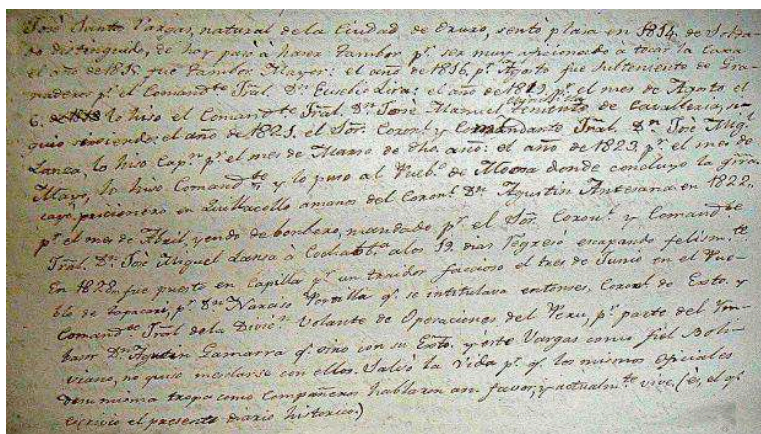 José Santos Vargas, natural de la Ciudad de Oruro, sentó plasa en 1814 de Solda-
do distinguido, de hay pasó à haser Tambor pr. ser muy aficionado à tocar la Caxa
el año de 1815 fue Tambor Mayor: el año de 1816, pr. Agosto fue subteniente de Gra-
naderos pr. el Comandte Tral. Dn. Eusebio Lira: el año de 1819, pr. el mes de Agosto el
6. lo hiso el Comandte Tral. Dn. José Manuel Chinchilla Teniente de Cavalleria, si-
guió sirviendo: el año de 1821, el Sor. Coronl. y Comandante Tral. Dn. José Migl.
Lansa, lo hiso Capn. pr. el mes de Marso de dho. año: el año de 1823, pr. el mes de
Mayo, lo hiso Comandte y lo puso al Pueblo de Moosa donde concluyo la
cayó pricionero en Quillacollo amanos del Coronl. Dn. Agustin Antesana en 1822.
pr. el mes de Abril, yendo de bombero, mandado pr. el Sor. Coronl. y Comandte
Tral. Dn. José Miguel Lansa à Cochabba. alos 19 dias regresó escapando felismte.
En 1828 fue puesto en Capilla pr. un traidor faccioso el tres de Junio en el Pue-
blo de Tapacarí, pr. Dn. Narciso Portilla q. se intitulava entonses, Coronl de Exto. y
Comandte Tral de la Divisn. Volante de Operaciones del Peru, pr. parte del Ym-
basor Dn. Agustin Gamarra q. vino con su Exto. y este Vargas como fiel Boli-
viano, no quiso mesclarse con ellos. Salvó la vida pr. q. los mismos oficiales
desu misma tropa como Compañeros hablaron asu favor, y actualmte. vive. (és, el q.
escrivió el presente diario historico.)